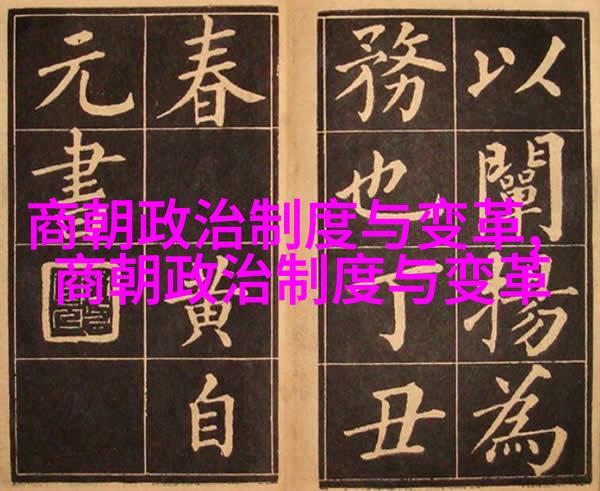 以闡揚為
務也丁丑
春 黃自
元書
商朝政治制度与变革,
商朝政治制度与变革